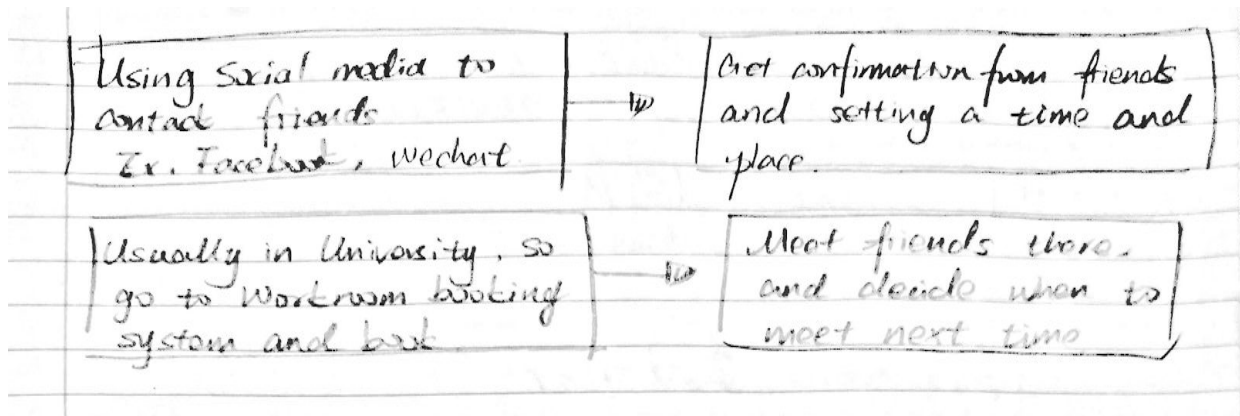 Using Social media to
contact friends
Ex. Facebook, wechart
Get confirmation from friends
and setting a time and
place.
Usually in University, so
go to Workroom booking
system and book
Meet friends there.
and decide when to
meet next time